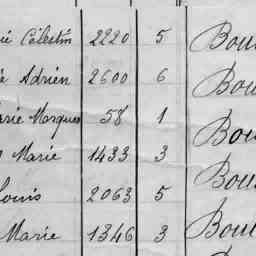 Célestin 2220 5 Bou
Adrien 2600 6 Bou
Marques 58 1 Bou
Marie 1433 3 Bou
Louis 2063 5 Bou
Marie 1346 3 Bou